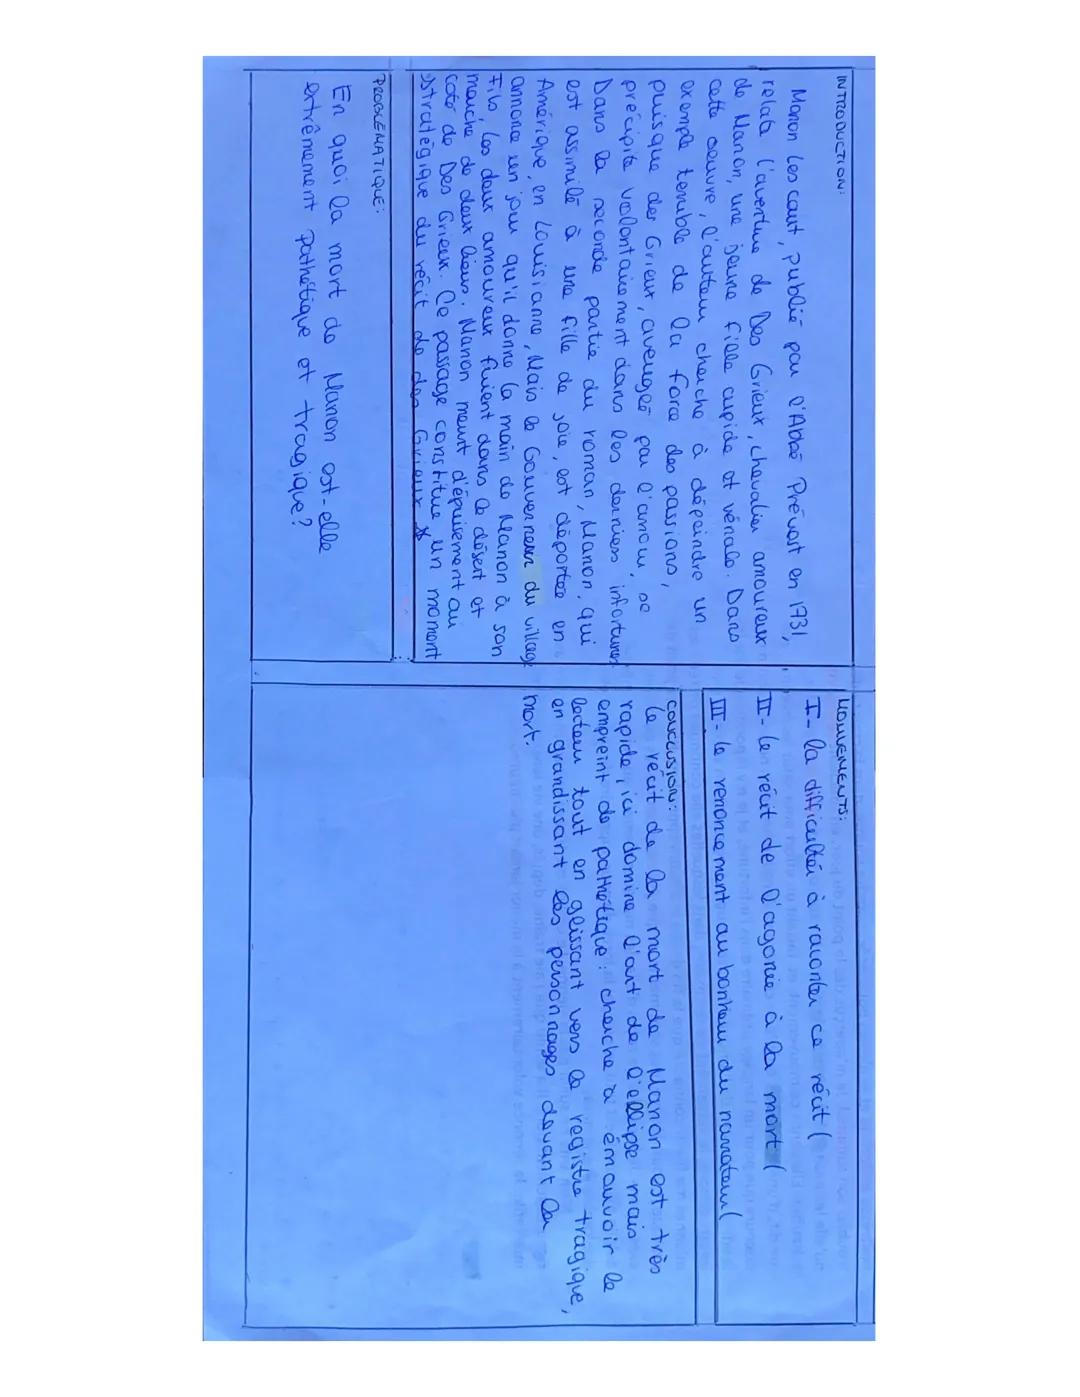 INTRODUCTION:
Manon Lescaut, publié par l'Abbé Prévost en 1731,
relate l'aventure de Des Grieux, chevalier amoureux
de Manon, une jeune fille cupide et vénale. Dans
cette oeuvre, l'auteur cherche à dépeindre un
exemple terrible de la force des passions,
puisque des Grieux, aveuglé par l'amour, se
précipite volontairement dans les derniers infortunes
Dans la seconde partie du roman, Manon, qui
est assimilé à une fille de joie, est déportée en
Amérique, en Louisianne, Mais le Gouverneur du village
annonce un jour qu'il donne la main de Manon à son
Fils, les deux amoureux fuient dans le désert et
marche de deux lieues. Manon meurt d'épuisement au
coté de Des Grieux. Ce passage constitue un moment
stratégique du récit de des Grieux *
PROBLEMATIQUE:
En quoi la mort de Manon est-elle
extrêmement pathétique et tragique?
MOUVEMENTS:
I- la difficulté à raconter ce récit (
II- le récit de l'agonie à la mort (
III- le renoncement au bonheur du narrateur (
CONCLUSION:
Le récit de la mort de Manon est très
rapide, ici domine l'art de l'ellipse mais
empreint de pathétique: cherche à émouvoir le
lecteur tout en glissant vers le registre tragique,
en grandissant les personnages devant la
mort.